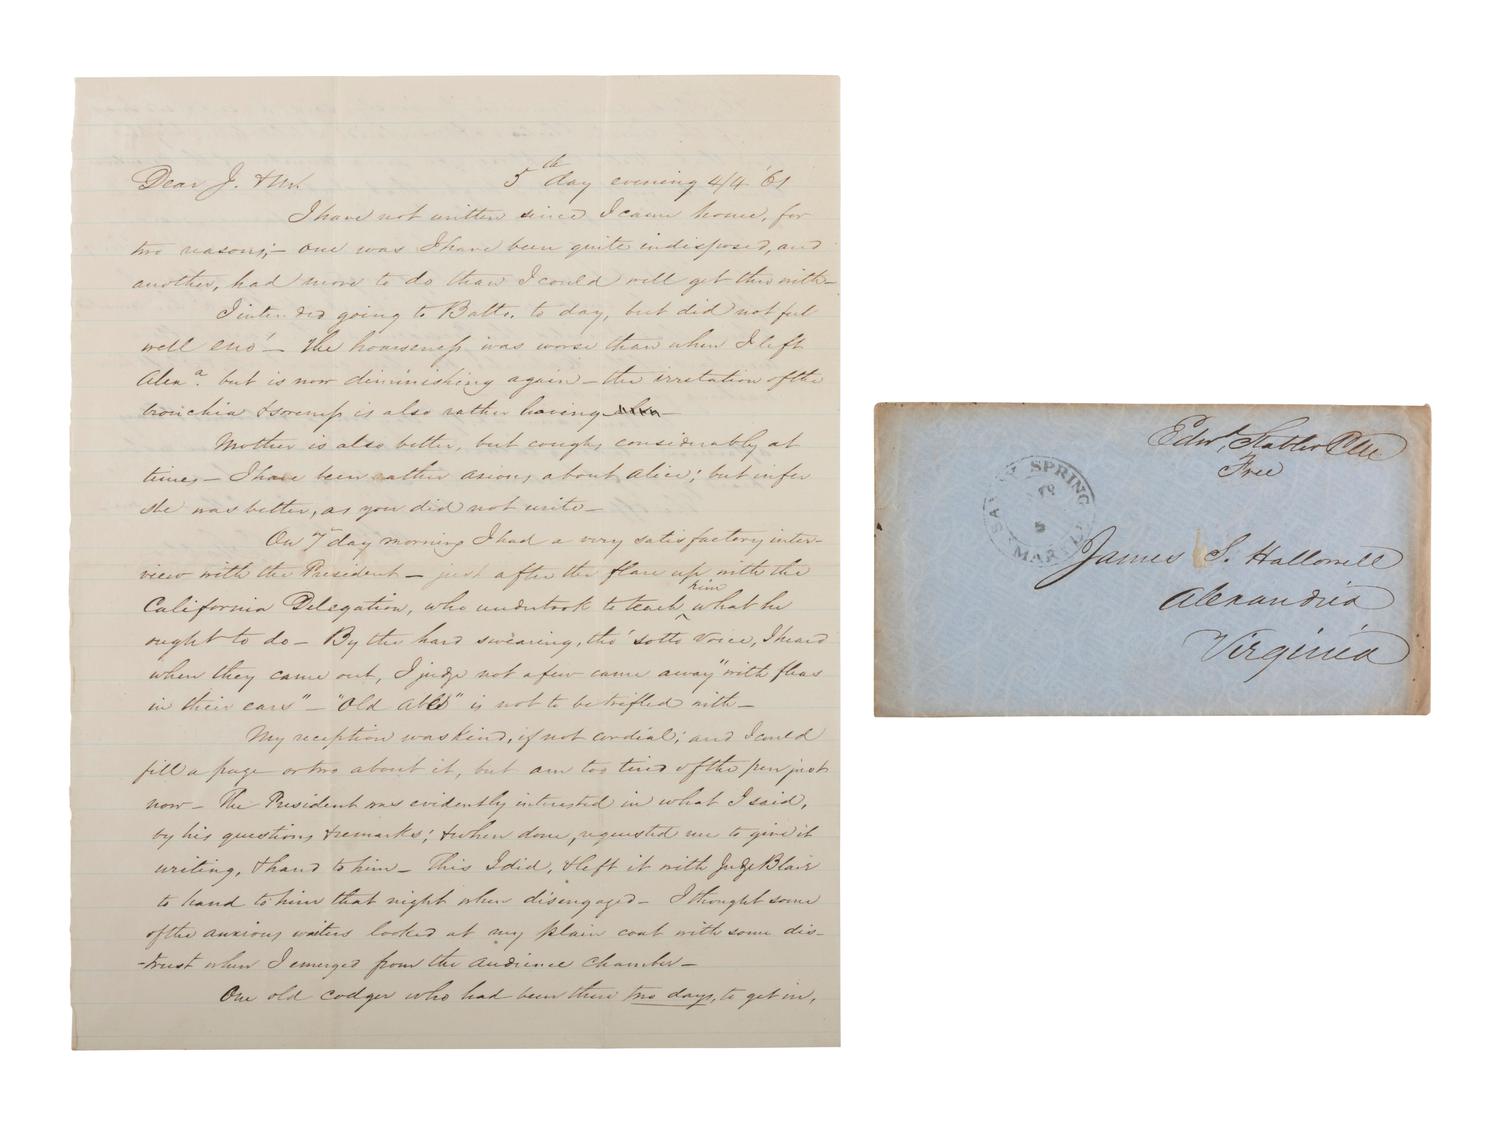 Dear J. & M.
5th day evening 4/4 '61
I have not written since I came home, for
two reasons;- one was I have been quite indisposed, and
another, had more to do than I could well get thro with-
I intended going to Balto. to day, but did not feel
well eno'- The hoarseness was worse than when I left
Alexa. but is now diminishing again - the irretation of the
bronchia & soreness is also rather
Mother is also better, but coughs considerably at
times - I have been rather anxious about Alice; but infer
she was better, as you did not write -
On 7th day morning I had a very satisfactory inter-
view with the President - just after the flare up with the
California Delegation, who undertook to teach him what he
ought to do - By the hard swearing, tho' sotto voice, I heard
when they came out, I judge not a few came away "with fleas
in their ears" - "Old Abe" is not to be trifled with -
My reception was kind, if not cordial; and I could
fill a page or two about it, but am too tired of the pen just
now - The President was evidently interested in what I said,
by his questions & remarks; & when done, requested me to give it
writing, & hand to him - This I did, & left it with Judge Blair
to hand to him that night when disengaged - I thought some
of the anxious waiters looked at my plain coat with some dis-
-trust when I emerged from the audience chamber -
One old codger who had been there two days, to get in,
Edwd. Stabler PM
Free
SANDY SPRING
5
MARYLAND
James S. Hallowell
Alexandria
Virginia